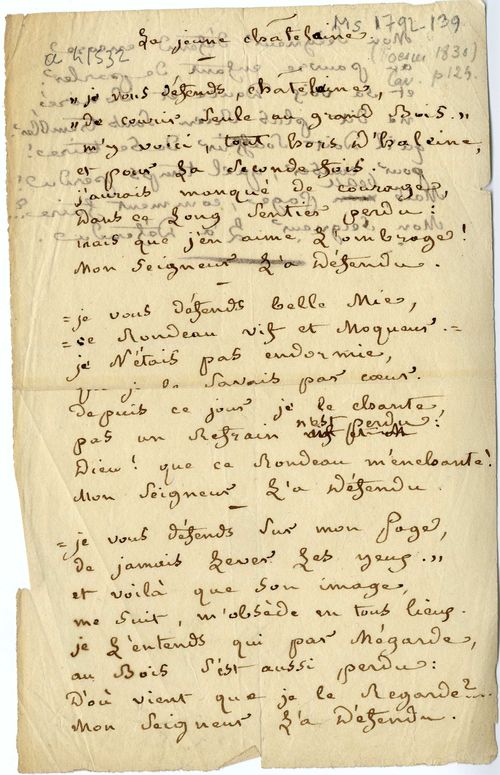 Ms 1792-139
La jeune châtelaine.
a 41532
(Poésies 1830)
p 125.
„ je vous défends, châtelaine,
„ de courir seule au grand Bois. „
m'y voici, tout hors d'haleine,
et pour La seconde fois.
j'aurais manqué de courage,
Dans ce Long sentier perdu:
mais que j'en aime L'ombrage!
Mon seigneur L'a Défendu.
= je vous défends belle Mie,
= ce Rondeau vif et Moqueur. =
je N'étais pas endormie,
que je le savais par cœur.
depuis ce jour je le chante,
pas un Refrain n'est perdu:
Dieu! que ce Rondeau m'enchante!
Mon seigneur L'a Défendu.
= je vous défends sur mon Page,
de jamais Lever Les yeux. „
et voilà que son image,
me suit, m'obsède en tous lieux.
je L'entends qui par Mégarde,
au Bois s'est aussi perdu:
D'où vient que je le Regarde?...
Mon seigneur L'a Défendu.